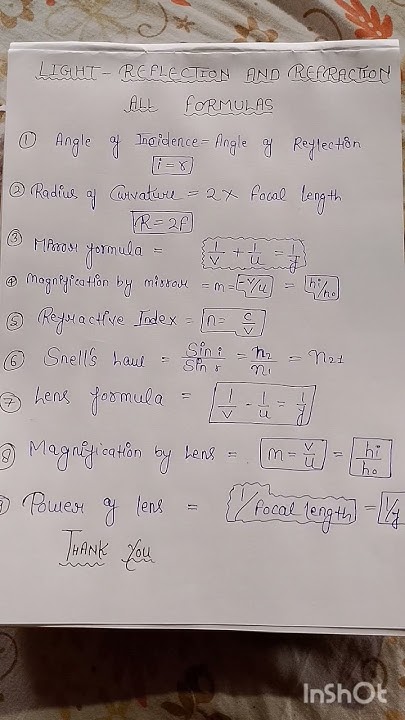 LIGHT - REFLECTION AND REFRACTION
ALL FORMULAS
① Angle of Incidence = Angle of Reflection
i = r
② Radius of Curvature = 2 x focal length
R = 2f
③ Mirror formula = 1/v + 1/u = 1/f
④ Magnification by mirror = m = -v/u = hi/ho
⑤ Refractive Index = n = c/v
⑥ Snell's Law = Sin i/Sin r = n2/n1 = n21
⑦ Lens formula = 1/v - 1/u = 1/f
⑧ Magnification by Lens = m = v/u = hi/ho
⑨ Power of lens = 1/focal length = 1/f
THANK YOU
InShOt